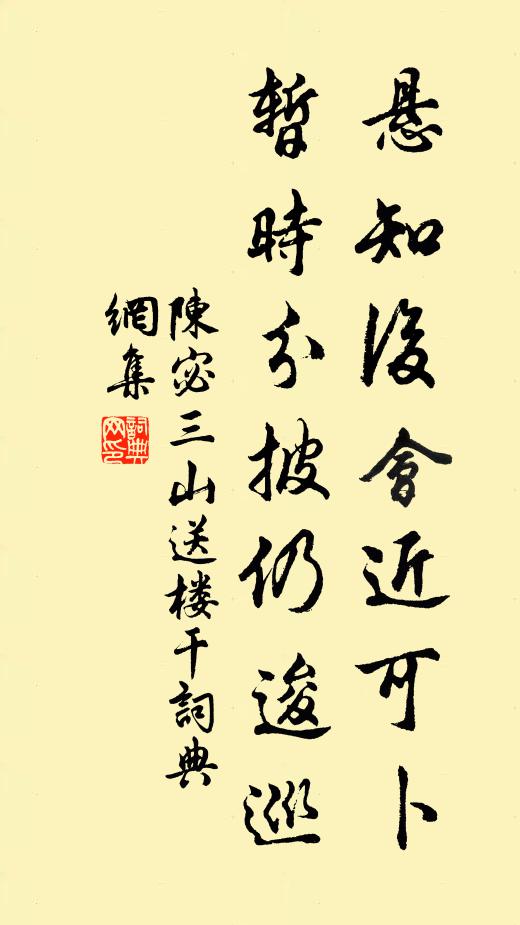 悬知後會近可卜
暫時分披仍逡巡
陳宓三山送楼干詞典
網集
詞典
网印